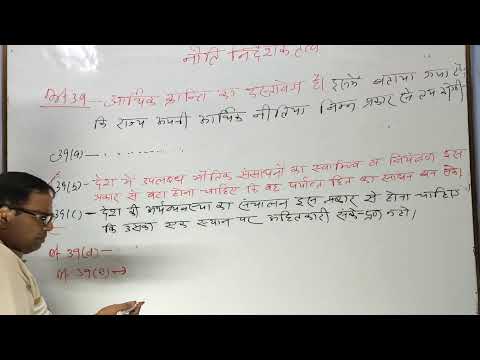 नीति निर्देशक तत्व
Art 39 - आर्थिक क्रान्ति का दस्तावेज है। इसमें बताया गया है,
कि राज्य अपनी आर्थिक नीतियां निम्न प्रकार से तय करेगी
39(a) -
39(b) - देश में उपलब्ध भौतिक संसाधनों का स्वामित्व व नियंत्रण इस
प्रकार से बंटा होना चाहिए कि वह हित का साधन बन सके।
39(c) - देश की अर्थव्यवस्था का संचालन इस प्रकार से होना चाहिए
कि उसका एक स्थान पर अहितकारी संकेन्द्रण न हो।
Art 39(d) -
Art 39(e) →